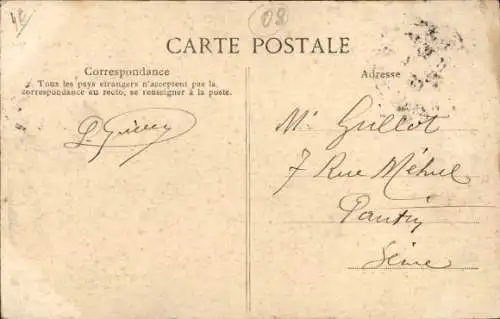 08
CARTE POSTALE
Correspondance
Tous les pays étrangers n'acceptent pas la
correspondance au recto, se renseigner à la poste.
Adresse
Mr Guillot
7 Rue Méhul
Pantin
Seine